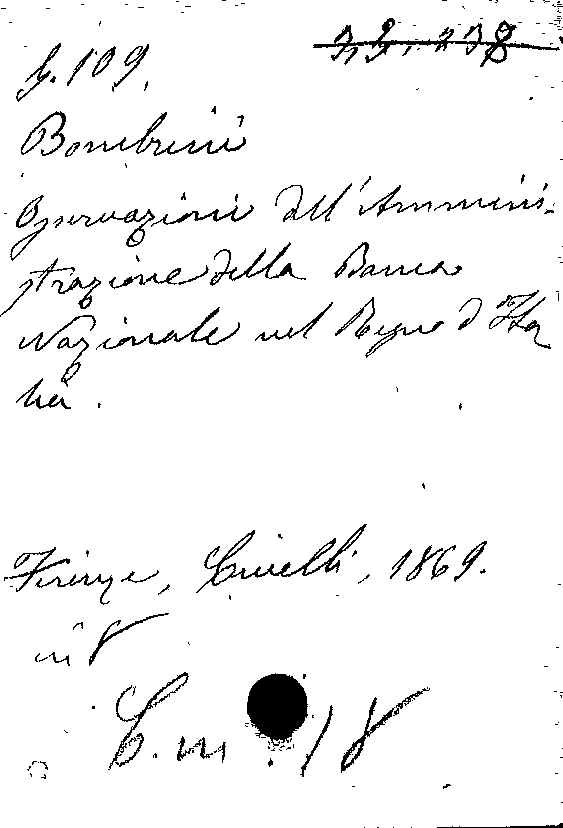 G. 109.
Bombrini
Osservazioni dell'Ammini-
strazione della Banca
Nazionale nel Regno d'Ita
lia.
Firenze, Civelli, 1869.
in 8
C. m. 18